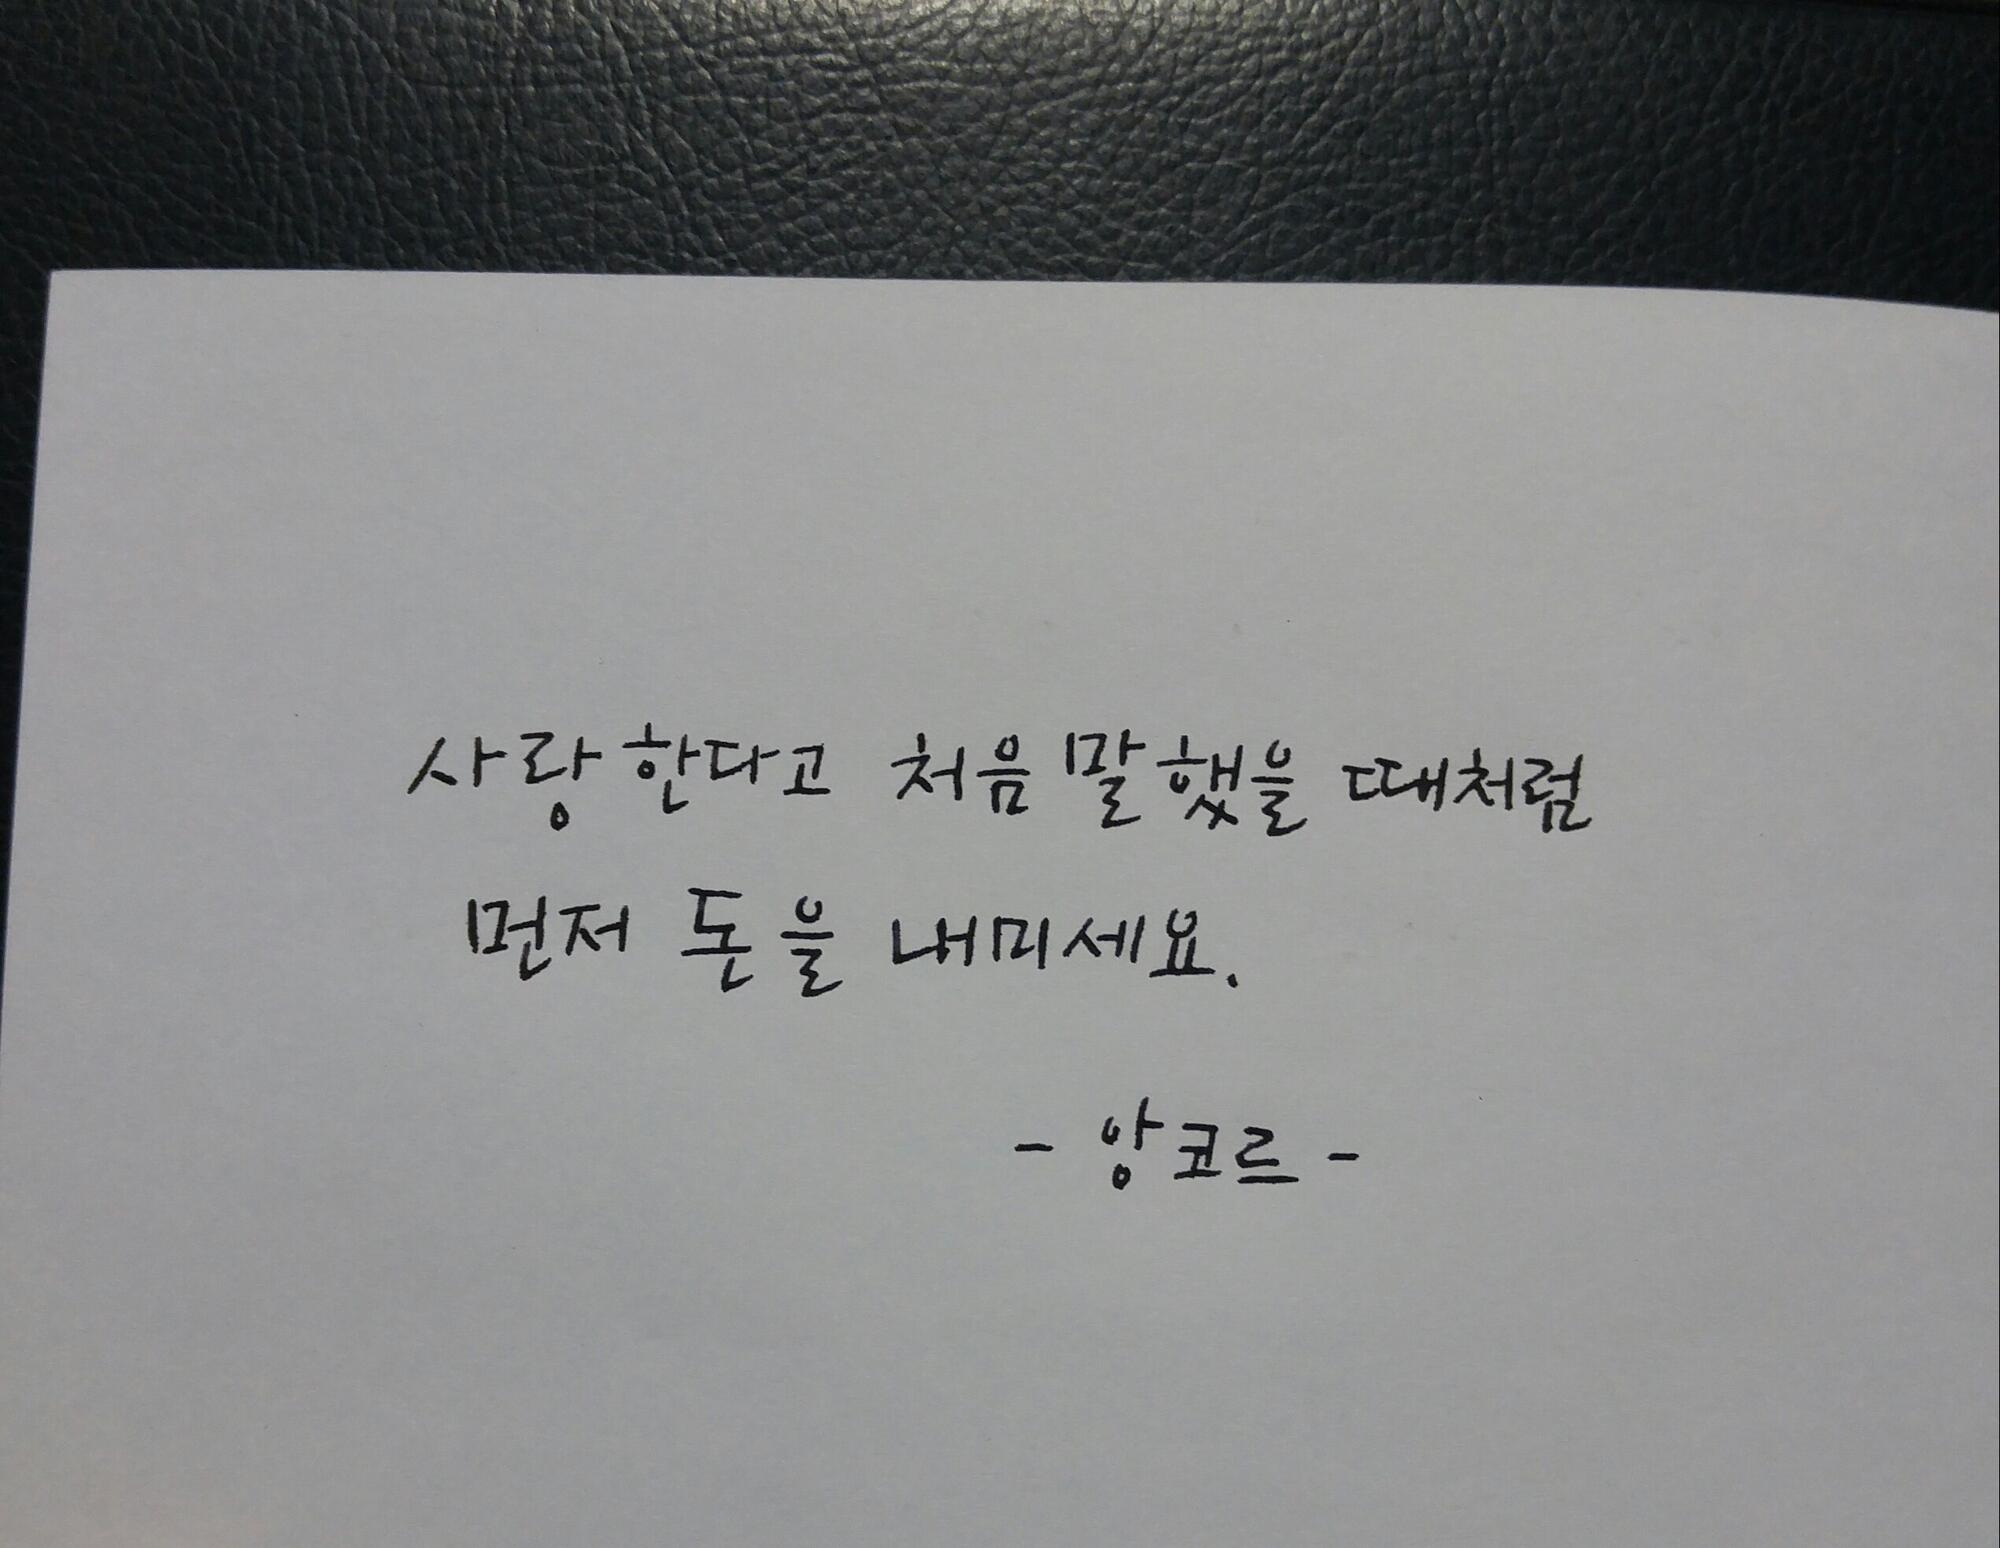 사랑한다고 처음 말했을 때처럼
먼저 돈을 내미세요.
- 앙코르 -